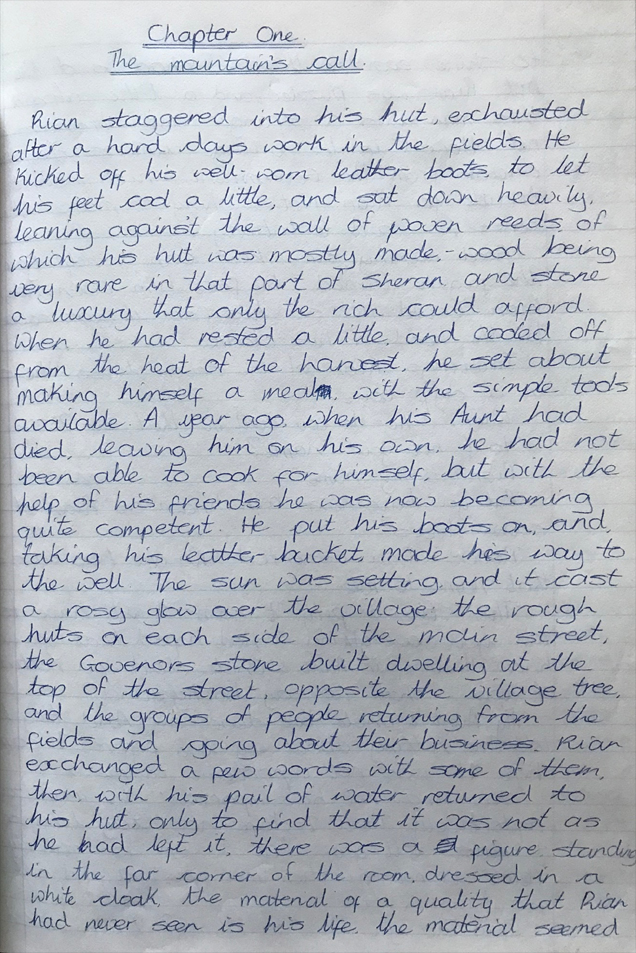 Chapter One.
The mountain's call.
Rian staggered into his hut, exhausted
after a hard days work in the fields. He
kicked off his well-worn leather boots, to let
his feet cool a little, and sat down heavily,
leaning against the wall of woven reeds, of
which his hut was mostly made, - wood being
very rare in that part of Sheran and stone
a luxury that only the rich could afford.
When he had rested a little, and cooled off
from the heat of the harvest, he set about
making himself a meal, with the simple tools
available. A year ago, when his Aunt had
died, leaving him on his own, he had not
been able to cook for himself, but with the
help of his friends he was now becoming
quite competent. He put his boots on, and,
taking his leather bucket, made his way to
the well. The sun was setting, and it cast
a rosy glow over the village: the rough
huts on each side of the main street,
the Govenors stone built dwelling at the
top of the street, opposite the village tree,
and the groups of people returning from the
fields and going about their business. Rian
exchanged a few words with some of them,
then, with his pail of water returned to
his hut, only to find that it was not as
he had left it, there was a figure standing
in the far corner of the room, dressed in a
white cloak, the material of a quality that Rian
had never seen is his life, the material seemed